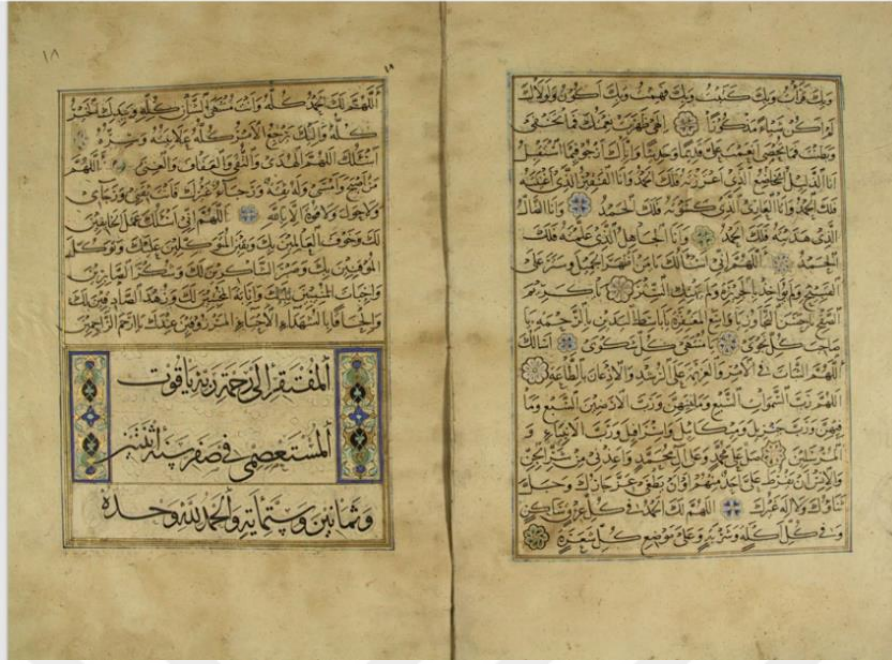 وبك قرأت وبك كتبت وبك فهمت وبك اكون ولولاك
لم اكن شياء مذكورا الهي ظهرت نعمتك فما تخفى
وبطنت فما تحصى انعمت علي قديما وحديثا واياك ارجو فيما استقبل
انا الذليل الخاضع الذي اعززته فلك الحمد وانا الفقير الذي اغنيته
فلك الحمد وانا العاري الذي كسوته فلك الحمد وانا الضال
الذي هديته فلك الحمد وانا الجاهل الذي علمته فلك
الحمد اللهم اني اسألك يا من اظهر الجميل وستر على
القبيح ولم يؤاخذ بالجريرة ولم يهتك الستر يا كريم
الصفح يا حسن التجاوز يا واسع المغفرة يا باسط اليدين بالرحمة يا
صاحب كل نجوى يا منتهى كل شكوى اسالك
اللهم الثبات في الامر والعزيمة على الرشد والاذعان بالطاعة
اللهم رب السموات السبع وما فيهن ورب الارضين السبع وما
فيهن ورب جبريل وميكائيل واسرافيل ورب الانبياء و
المرسلين صل على محمد وعلى آل محمد واعذني من شر الجن
والانس ان يفرط علي احد منهم او ان يطغى عز جارك وجل
ثناؤك ولا اله غيرك اللهم لك الحمد في كل عرق ساكن
وفي كل اكلة وشربة وعلى موضع كل شعرة
١٨
اللهم لك الحمد كله وانت منتهى الشان كله وبيدك الخير
كله واليك يرجع الامر كله علانيته وسره
اسئلك اللهم الهدى والتقى والعفاف والغنى اللهم
من اصبح وامسى وله ثقة ورجاء غيرك فانت ثقتي ورجاي
ولا حول ولا قوة الا بالله اللهم اني اسئلك عمل الخايفين
لك وخوف العالمين بك ويقين المتوكلين عليك وتوكل
الموقنين بك وصبر الشاكرين لك وشكر الصابرين
واخبات المنيبين اليك وانابة المخبتين لك وزهد الصادقين لك
والحاقا بالشهداء الاحياء المرزوقين عندك يا ارحم الراحمين
المفتقر الى رحمة ربه ياقوت
المستعصمي في صفر سنة اثنتين
وثمانين وستماية والحمد لله وحده